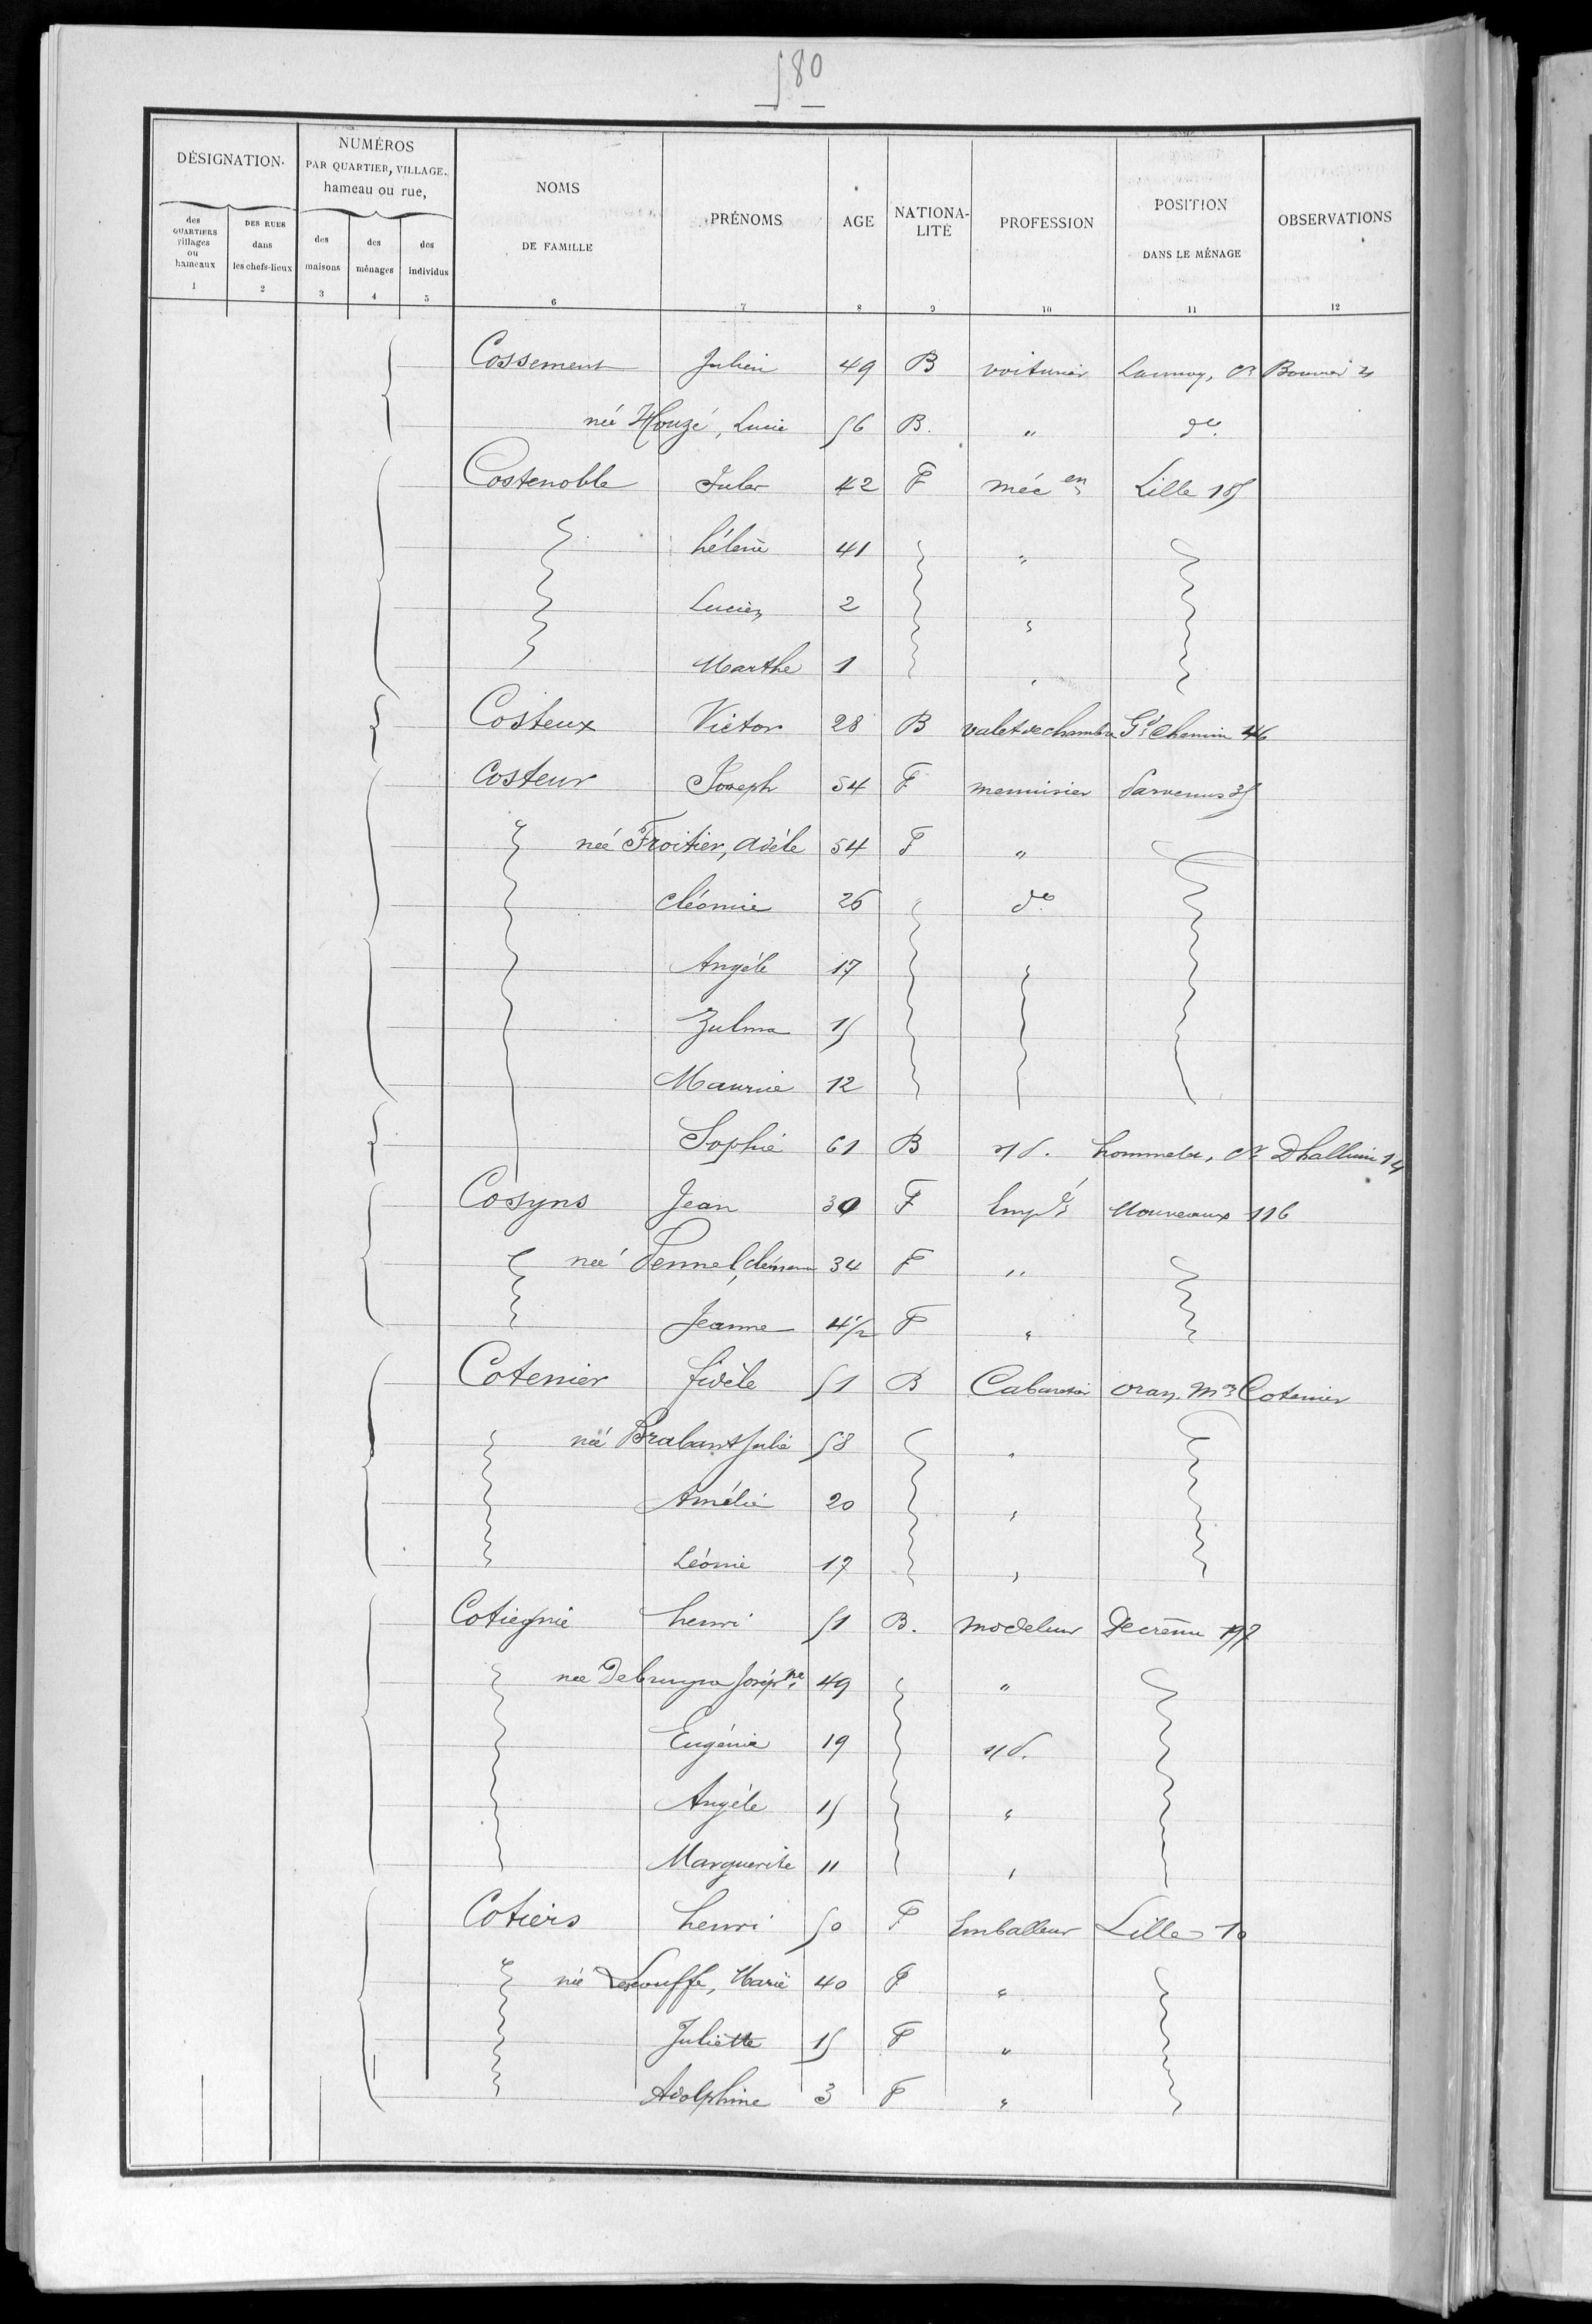 580
DÉSIGNATION. NUMÉROS PAR QUARTIER, VILLAGE. hameau ou rue, NOMS DE FAMILLE PRÉNOMS AGE NATIONA-LITÉ PROFESSION POSITION DANS LE MÉNAGE OBSERVATIONS
des QUARTIERS villages ou hameaux DES RUES dans les chefs-lieux des maisons des ménages des individus
1 2 3 4 5 6 7 8 9 10 11 12
Cossement Julien 49 B voiturier Lannoy, cr 21
née Houzé, Lucie 56 B. " do
Costenoble Jules 42 F méc en Lille 185
hélène 41 "
Lucien 2 "
Marthe 1 "
Costeux Victor 28 B valet de chambre Gd Chemin 46
Costeur Joseph 54 F menuisier Parvenus 35
née Froitier, Adèle 54 F "
Cléonie 26 do
Angèle 17
Zulma 15
Maurice 12
Sophie 61 B hommelet, cr Dhalluin 14
Cosyns Jean 30 F Empé Mouveaux 116
née Pennel, 34 F "
Jeanne 4/2 F "
Cotenier fidèle 51 B Cabaretier oran, mon Cotenier
née Brabant Julie 58 "
Amélie 20 "
Léonie 17 "
Cotiegnie henri 51 B. modeleur Decrême 197
née Debruyne Joséphne 49 "
Eugénie 19
Angèle 15 "
Marguerite 11 "
Cotiers henri 50 F Emballeur Lille 10
née Lescouffe, Marie 40 F "
Juliette 15 F "
Adolphine 3 F "